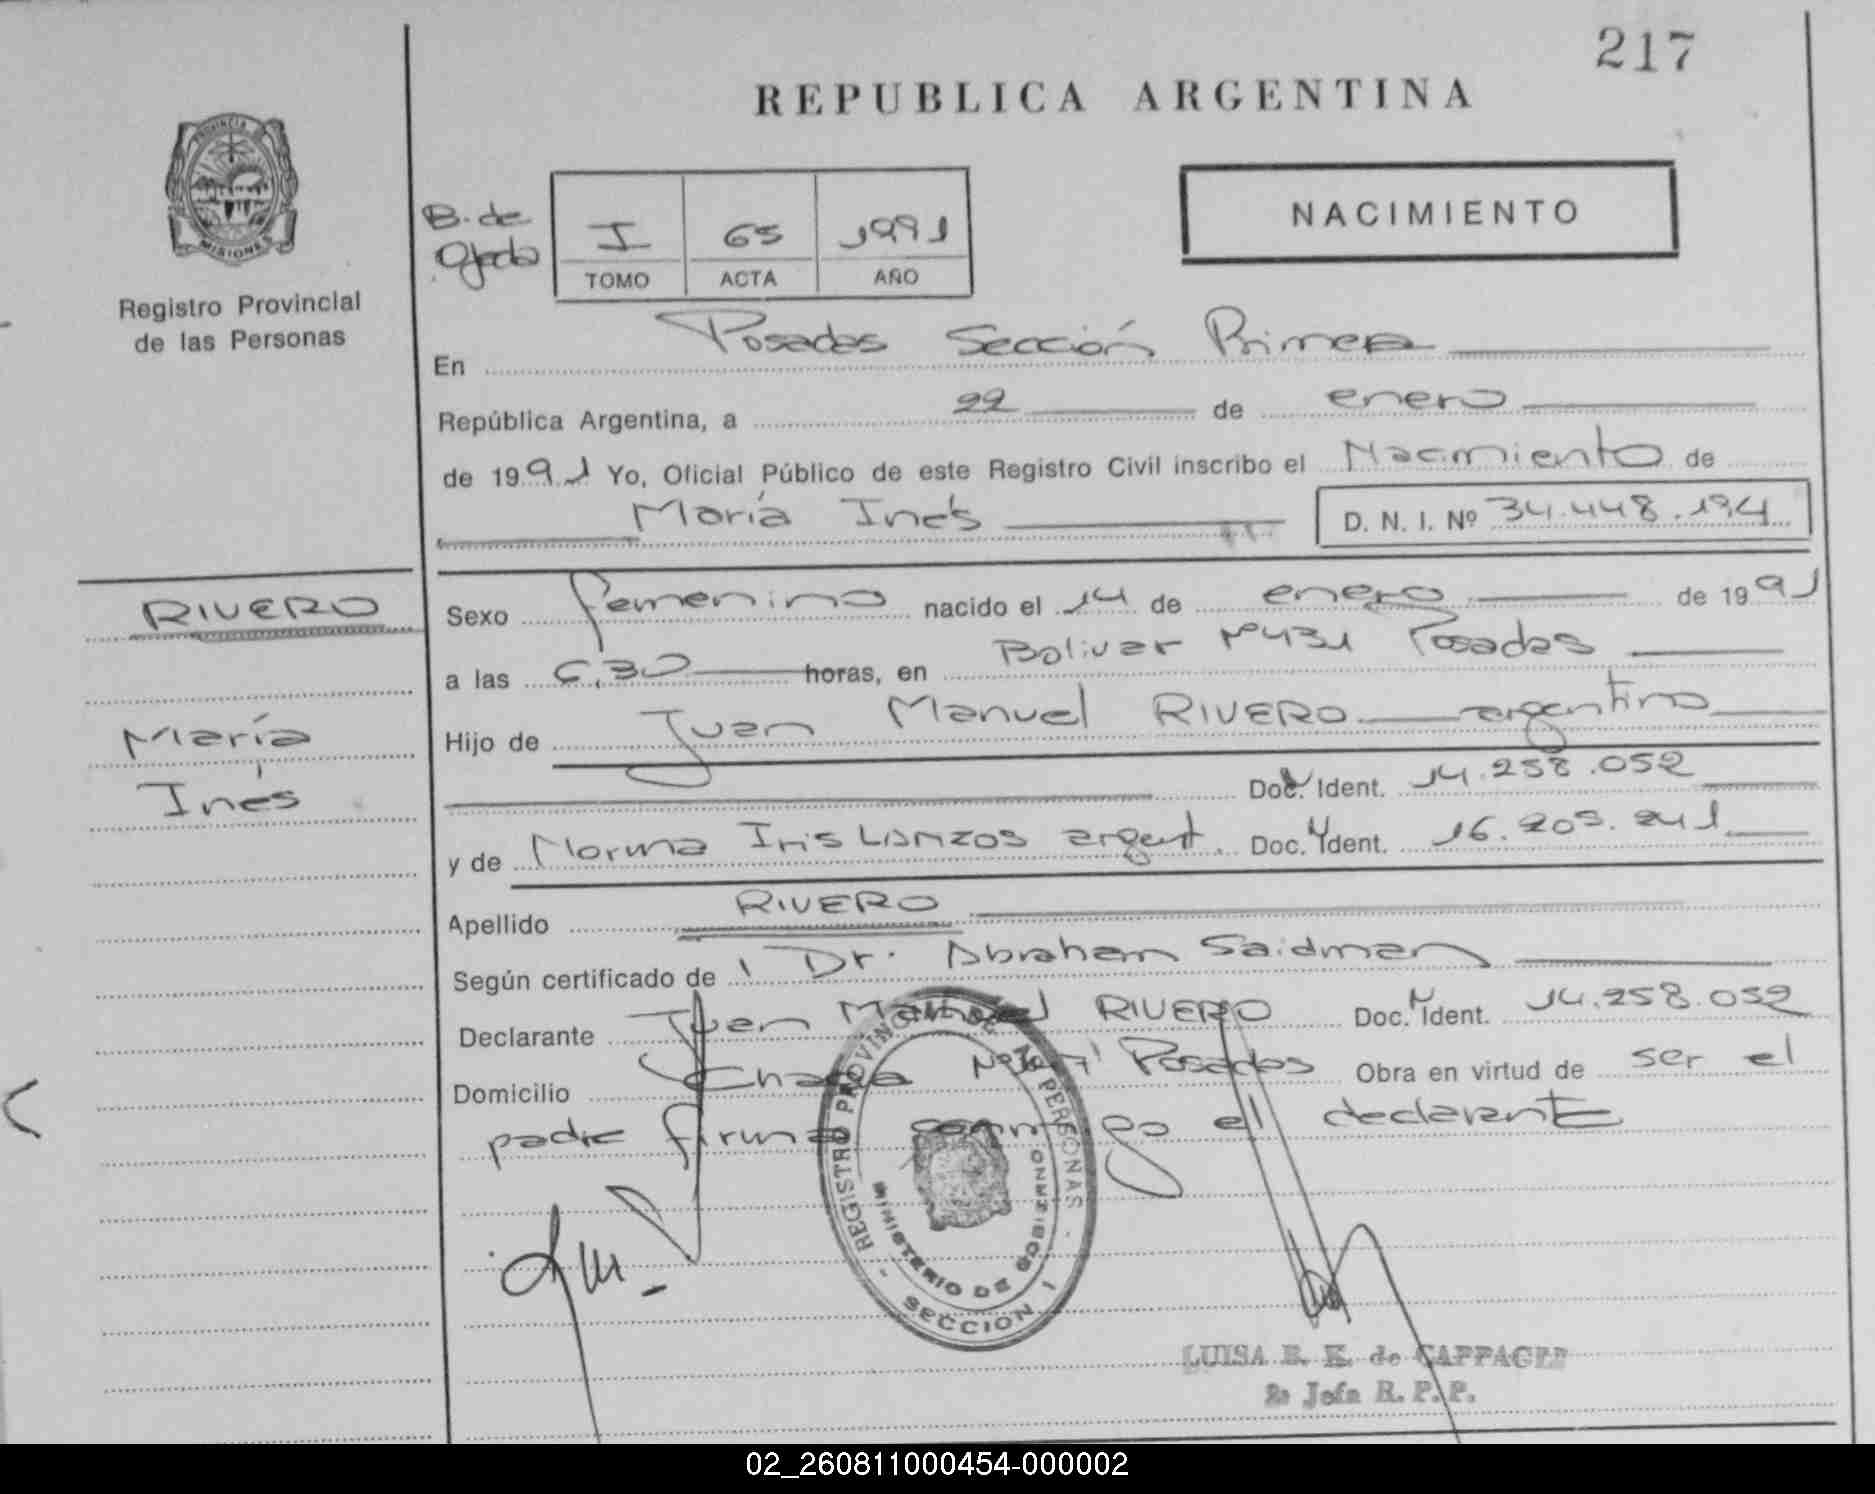 217
REPUBLICA ARGENTINA
PROVINCIA DE
MISIONES
Registro Provincial
de las Personas
B. de
Ojeda
I 65 1991
TOMO ACTA AÑO
NACIMIENTO
En Posadas Sección Primera
República Argentina, a 22 de enero
de 1991 Yo, Oficial Público de este Registro Civil inscribo el Nacimiento de
María Inés D. N. I. Nº 34.448.194
RIVERO
María
Inés
Sexo femenino nacido el 14 de enero de 1991
a las 6,30 horas, en Bolivar Nº431 Posadas
Hijo de Juan Manuel RIVERO argentino
Doc. Ident. 14.258.052
y de Norma Iris LANZOS argent. Doc. Ident. 16.205.241
Apellido RIVERO
Según certificado de Dr. Abraham Saidman
Declarante Juan Manuel RIVERO Doc. Ident. 14.258.052
Domicilio Chacra Posadas Obra en virtud de ser el
padre firma conmigo el declarante
REGISTRO PROVINCIAL DE LAS PERSONAS
MINISTERIO DE GOBIERNO
SECCION 1
LUISA E. K. de
2ª Jefa R. P. P.
02_260811000454-000002